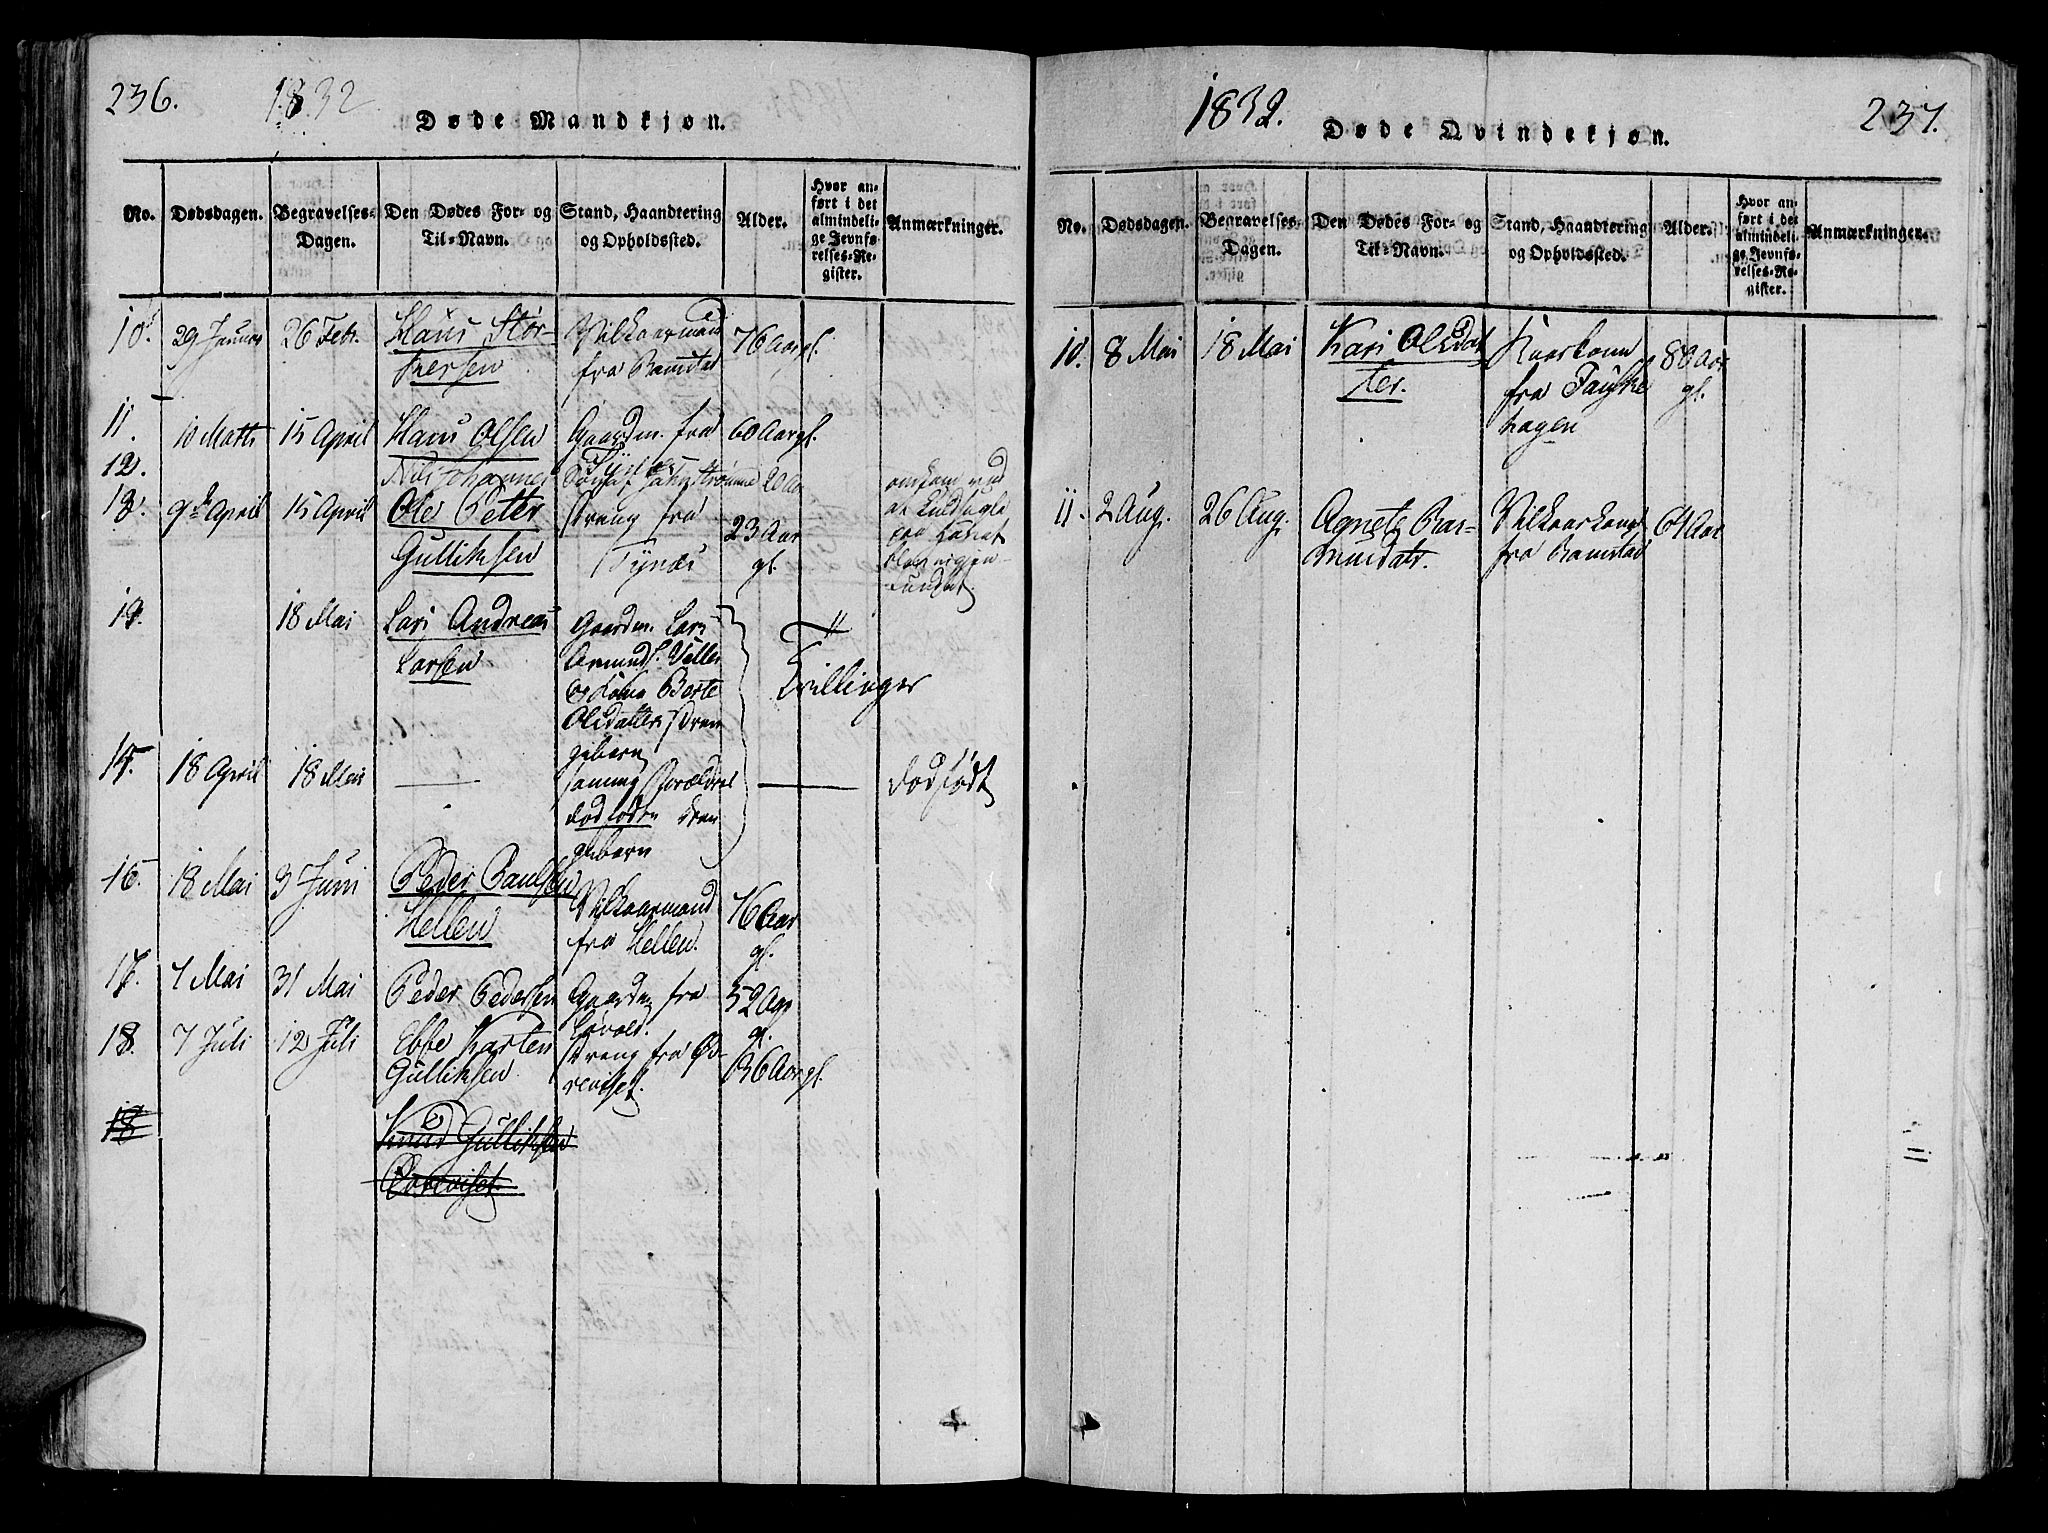 236.
1832
Døde Mandkjøn.
No.
Dødsdagen.
Begravelses-
Dagen.
Den Dødes For- og
Til-Navn.
Stand, Haandtering
og Opholdssted.
Alder.
Hvor an-
ført i det
almindeli-
ge Jevnfø-
relses-Re-
gister.
Anmærkninger.
10. 29 Januar 26 Febr. Hans Stor-
kersen
Vilkaarmand
fra Ramstad
76 Aar gl.
11. 10 Marts 15 April Hans Olsen
Gaardm. fra
60 Aar gl.
12. Nils Johannes
20 Aar
omkom ved
paa Havet
blev igjen-
fundet
13. 9de April 15 April Ole Peter
Gulliksen
Dreng fra
Tynæs
23 Aar
gl.
14. 18 Mai Lars Andreas
Larsen
Gaardm. Lars
Amunds. Valle
og Kone Berte
Olsdatters Dren
gebarn
Tvillinger
15. 18 April 18 Mai —
samme Forældres
dødfødte Dren
gebarn
—
dødfødt
16. 18 Mai 3 Juni Peder Paulsen
Hellen
Vilkaarmand
fra Hellen.
76 Aar
gl.
17. 7 Mai 31 Mai Peder Pedersen
Gaardm. fra
Løvold.
52 Aar
gl.
18. 7 Juli 12 Juli Ebbe Karten
Gulliksen
Dreng fra Øv-
reviset.
36 Aar gl.
18
Knud Gulliksen
Øvreviset.
1832.
237.
Døde Qvindekjøn.
No.
Dødsdagen.
Begravelses-
Dagen.
Den Dødes For- og
Til-Navn.
Stand, Haandtering
og Opholdssted.
Alder.
Hvor an-
ført i det
almindeli-
ge Jevnfø-
relses-Re-
gister.
Anmærkninger.
10. 8 Mai 18 Mai Kari Olsdat
ter.
Kaarkone
fra Fauske
hagen
80 Aar
gl.
11. 2 Aug. 26 Aug. Agnete Ras-
musdatr.
Vilkaarkone
fra Ramstad
61 Aar